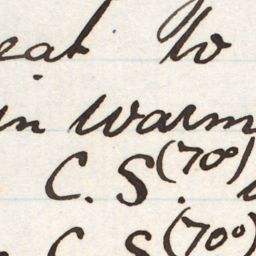 eat to
in warm
C. S. (70°)
C. S (70°)